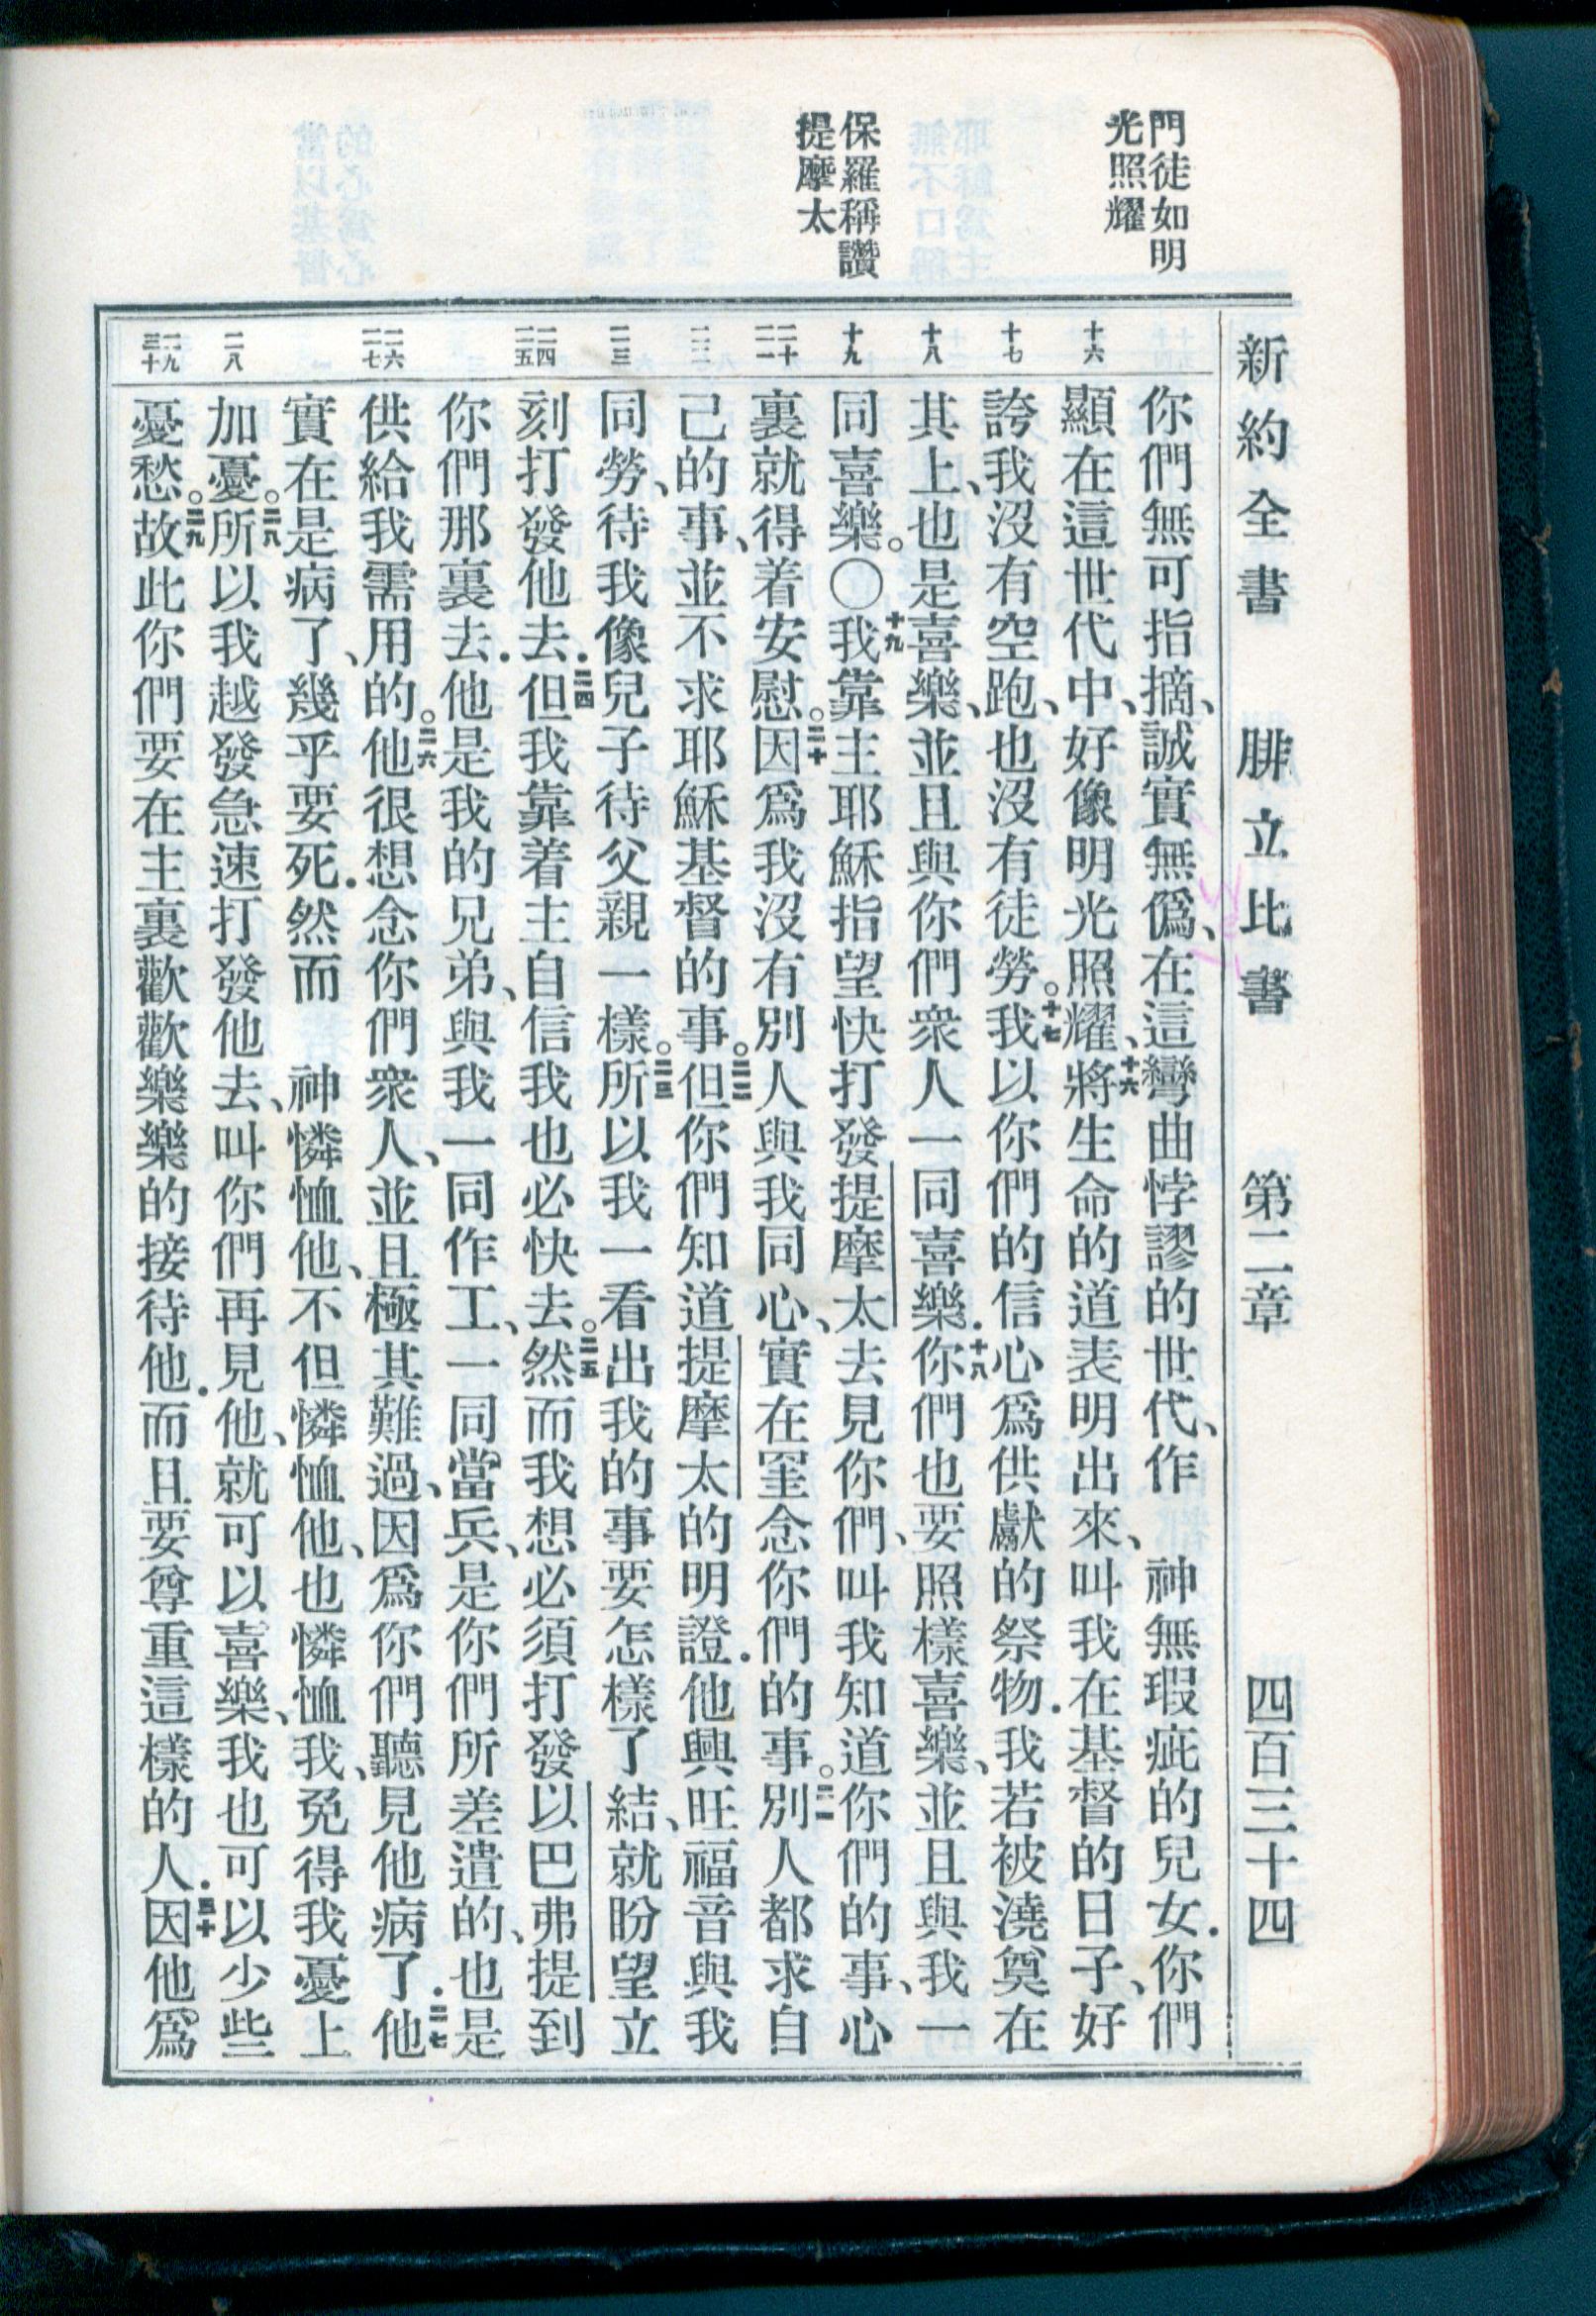 新約全書 腓立比書 第二章 四百三十四
門徒如明
光照耀
保羅稱讚
提摩太
十六
十七
十八
十九
二十
二一
二二
二三
二四
二五
二六
二七
二八
二九
三十
你們無可指摘、誠實無僞、在這彎曲悖謬的世代、作 神無瑕疵的兒女．你們
顯在這世代中、好像明光照耀、十六將生命的道表明出來、叫我在基督的日子、好
誇我沒有空跑、也沒有徒勞。十七我以你們的信心爲供獻的祭物．我若被澆奠在
其上、也是喜樂、並且與你們衆人一同喜樂．十八你們也要照樣喜樂、並且與我一
同喜樂。〇十九我靠主耶穌指望快打發提摩太去見你們、叫我知道你們的事、心
裏就得着安慰。二十因爲我沒有別人與我同心、實在罣念你們的事。二一別人都求自
己的事、並不求耶穌基督的事。二二但你們知道提摩太的明證．他興旺福音與我
同勞、待我像兒子待父親一樣。二三所以我一看出我的事要怎樣了結、就盼望立
刻打發他去．二四但我靠着主自信我也必快去。二五然而我想必須打發以巴弗提到
你們那裏去．他是我的兄弟、與我一同作工、一同當兵、是你們所差遣的、也是
供給我需用的。二六他很想念你們衆人、並且極其難過、因爲你們聽見他病了．二七他
實在是病了、幾乎要死．然而 神憐恤他、不但憐恤他、也憐恤我、免得我憂上
加憂。二八所以我越發急速打發他去、叫你們再見他、就可以喜樂、我也可以少些
憂愁。二九故此你們要在主裏歡歡樂樂的接待他．而且要尊重這樣的人．三十因他爲